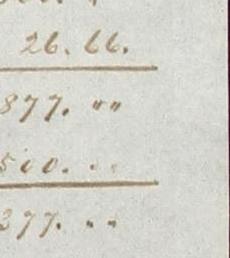 26. 66.
877. ""
500. ..
377. ..